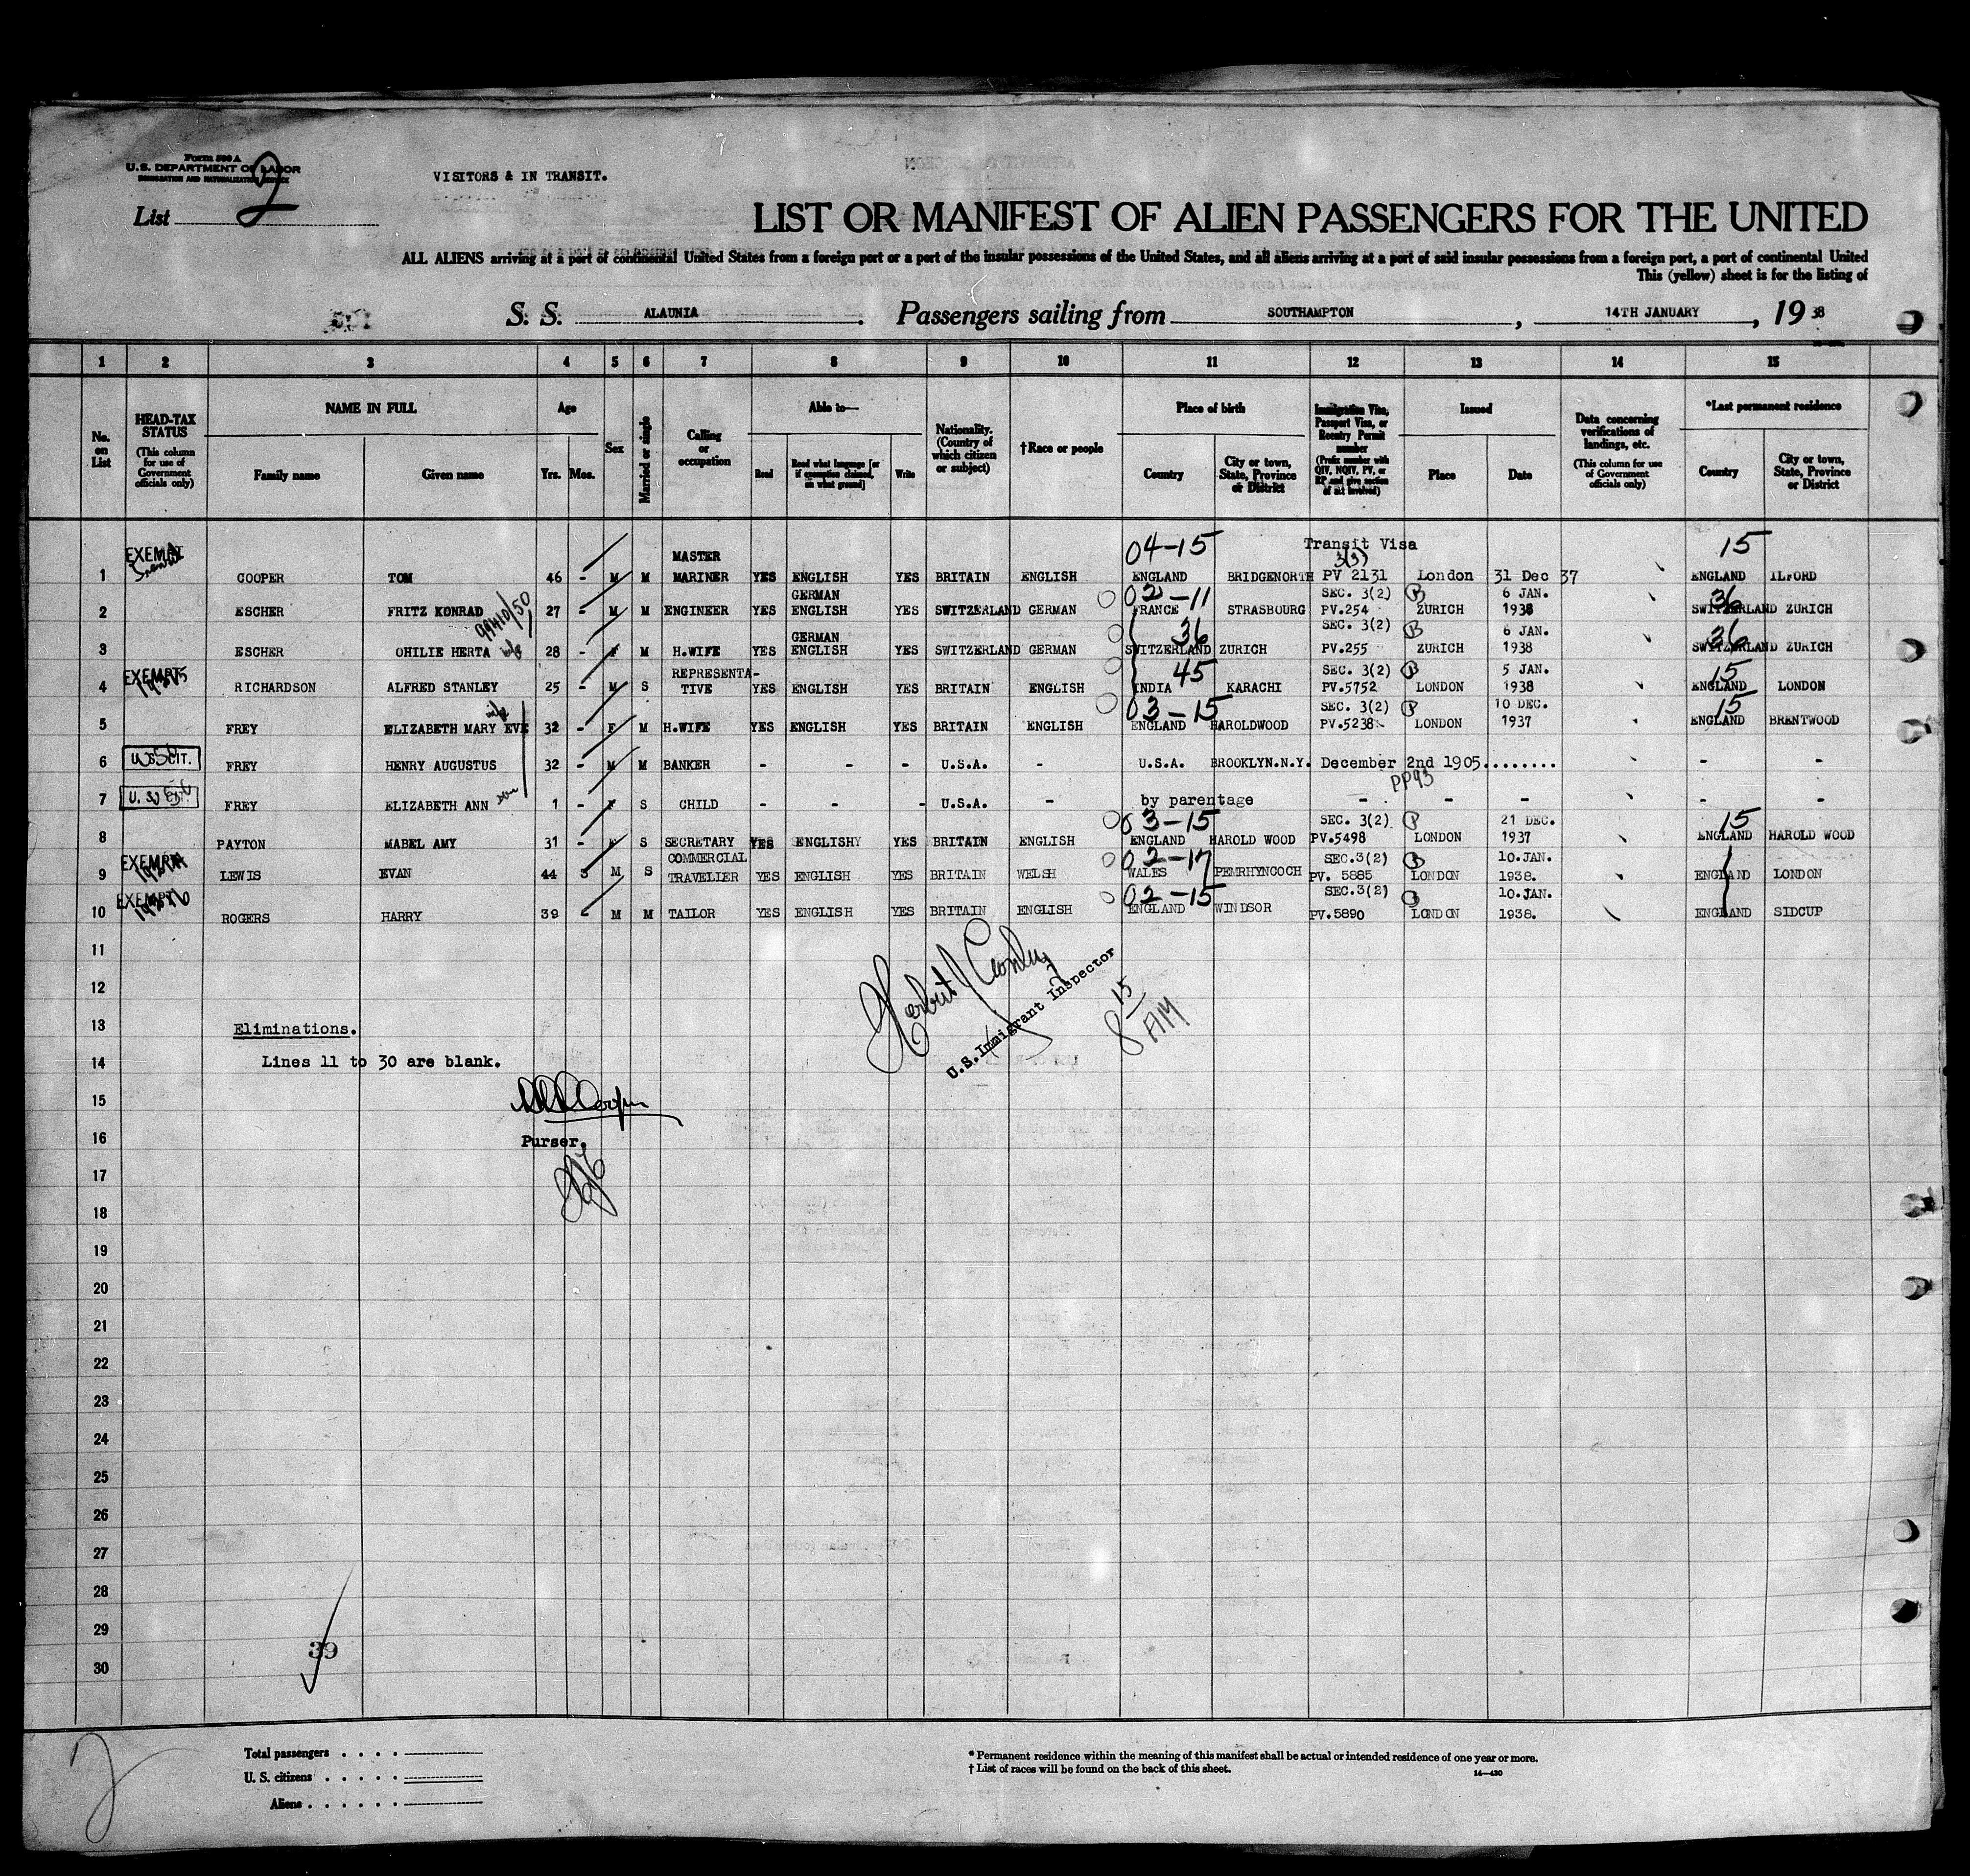 Form 500 A
U.S. DEPARTMENT OF LABOR
IMMIGRATION AND NATURALIZATION SERVICE
List 2
VISITORS & IN TRANSIT.
LIST OR MANIFEST OF ALIEN PASSENGERS FOR THE UNITED
ALL ALIENS arriving at a port of continental United States from a foreign port or a port of the insular possessions of the United States, and all aliens arriving at a port of said insular possessions from a foreign port, a port of continental United
This (yellow) sheet is for the listing of
S. S. ALAUNIA. Passengers sailing from SOUTHAMPTON, 14TH JANUARY, 1938
1 2 3 4 5 6 7 8 9 10 11 12 13 14 15
No. on List
HEAD-TAX STATUS
(This column for use of Government officials only)
NAME IN FULL
Family name Given name
Age
Yrs. Mos.
Sex
Married or single
Calling or occupation
Able to—
Read Read what language [or if exemption claimed, on what ground] Write
Nationality. (Country of which citizen or subject)
†Race or people
Place of birth
Country City or town, State, Province or District
Immigration Visa, Passport Visa, or Reentry Permit number
(Prefix number with QIV, NQIV, PV, or RP and give section of act involved)
Issued
Place Date
Data concerning verifications of landings, etc.
(This column for use of Government officials only)
*Last permanent residence
Country City or town, State, Province or District
EXEMPT MASTER 04-15 Transit Visa 3(3) 15
1 COOPER TOM 46 - M M MARINER YES ENGLISH YES BRITAIN ENGLISH ENGLAND BRIDGENORTH PV 2131 London 31 Dec 37 ENGLAND ILFORD
GERMAN 02-11 SEC. 3(2) 6 JAN. 36
2 ESCHER FRITZ KONRAD 27 - M M ENGINEER YES ENGLISH YES SWITZERLAND GERMAN FRANCE STRASBOURG PV.254 ZURICH 1938 SWITZERLAND ZURICH
99410/50
GERMAN 36 SEC. 3(2) 6 JAN. 36
3 ESCHER OHILIE HERTA 28 - F M H.WIFE YES ENGLISH YES SWITZERLAND GERMAN SWITZERLAND ZURICH PV.255 ZURICH 1938 SWITZERLAND ZURICH
EXEMPT REPRESENTA- 45 SEC. 3(2) 5 JAN. 15
4 RICHARDSON ALFRED STANLEY 25 - M S TIVE YES ENGLISH YES BRITAIN ENGLISH INDIA KARACHI PV.5752 LONDON 1938 ENGLAND LONDON
03-15 SEC. 3(2) 10 DEC. 15
5 FREY ELIZABETH MARY EVE 32 - F M H.WIFE YES ENGLISH YES BRITAIN ENGLISH ENGLAND HAROLDWOOD PV.5238 LONDON 1937 ENGLAND BRENTWOOD
6 U.S. CIT. FREY HENRY AUGUSTUS 32 - M M BANKER - - - U.S.A. - U.S.A. BROOKLYN.N.Y. December 2nd 1905........ - -
PP93
7 U.S. CIT. FREY ELIZABETH ANN 1 - F S CHILD - - - U.S.A. - by parentage - - - - -
03-15 SEC. 3(2) 21 DEC. 15
8 PAYTON MABEL AMY 31 - F S SECRETARY YES ENGLISHY YES BRITAIN ENGLISH ENGLAND HAROLD WOOD PV.5498 LONDON 1937 ENGLAND HAROLD WOOD
EXEMPT COMMERCIAL 02-17 SEC.3(2) 10.JAN.
9 LEWIS EVAN 44 3 M S TRAVELIER YES ENGLISH YES BRITAIN WELSH WALES PEMRHYNCOCH PV. 5885 LONDON 1938. ENGLAND LONDON
EXEMPT 02-15 SEC.3(2) 10.JAN.
10 ROGERS HARRY 39 - M M TAILOR YES ENGLISH YES BRITAIN ENGLISH ENGLAND WINDSOR PV.5890 LONDON 1938. ENGLAND SIDCUP
11
12
U.S. Immigrant Inspector
8 15 AM
13 Eliminations.
14 Lines 11 to 30 are blank.
15
16 Purser.
17
18
19
20
21
22
23
24
25
26
27
28
29
39
30
2
Total passengers
U. S. citizens
Aliens
* Permanent residence within the meaning of this manifest shall be actual or intended residence of one year or more.
† List of races will be found on the back of this sheet.
14—430